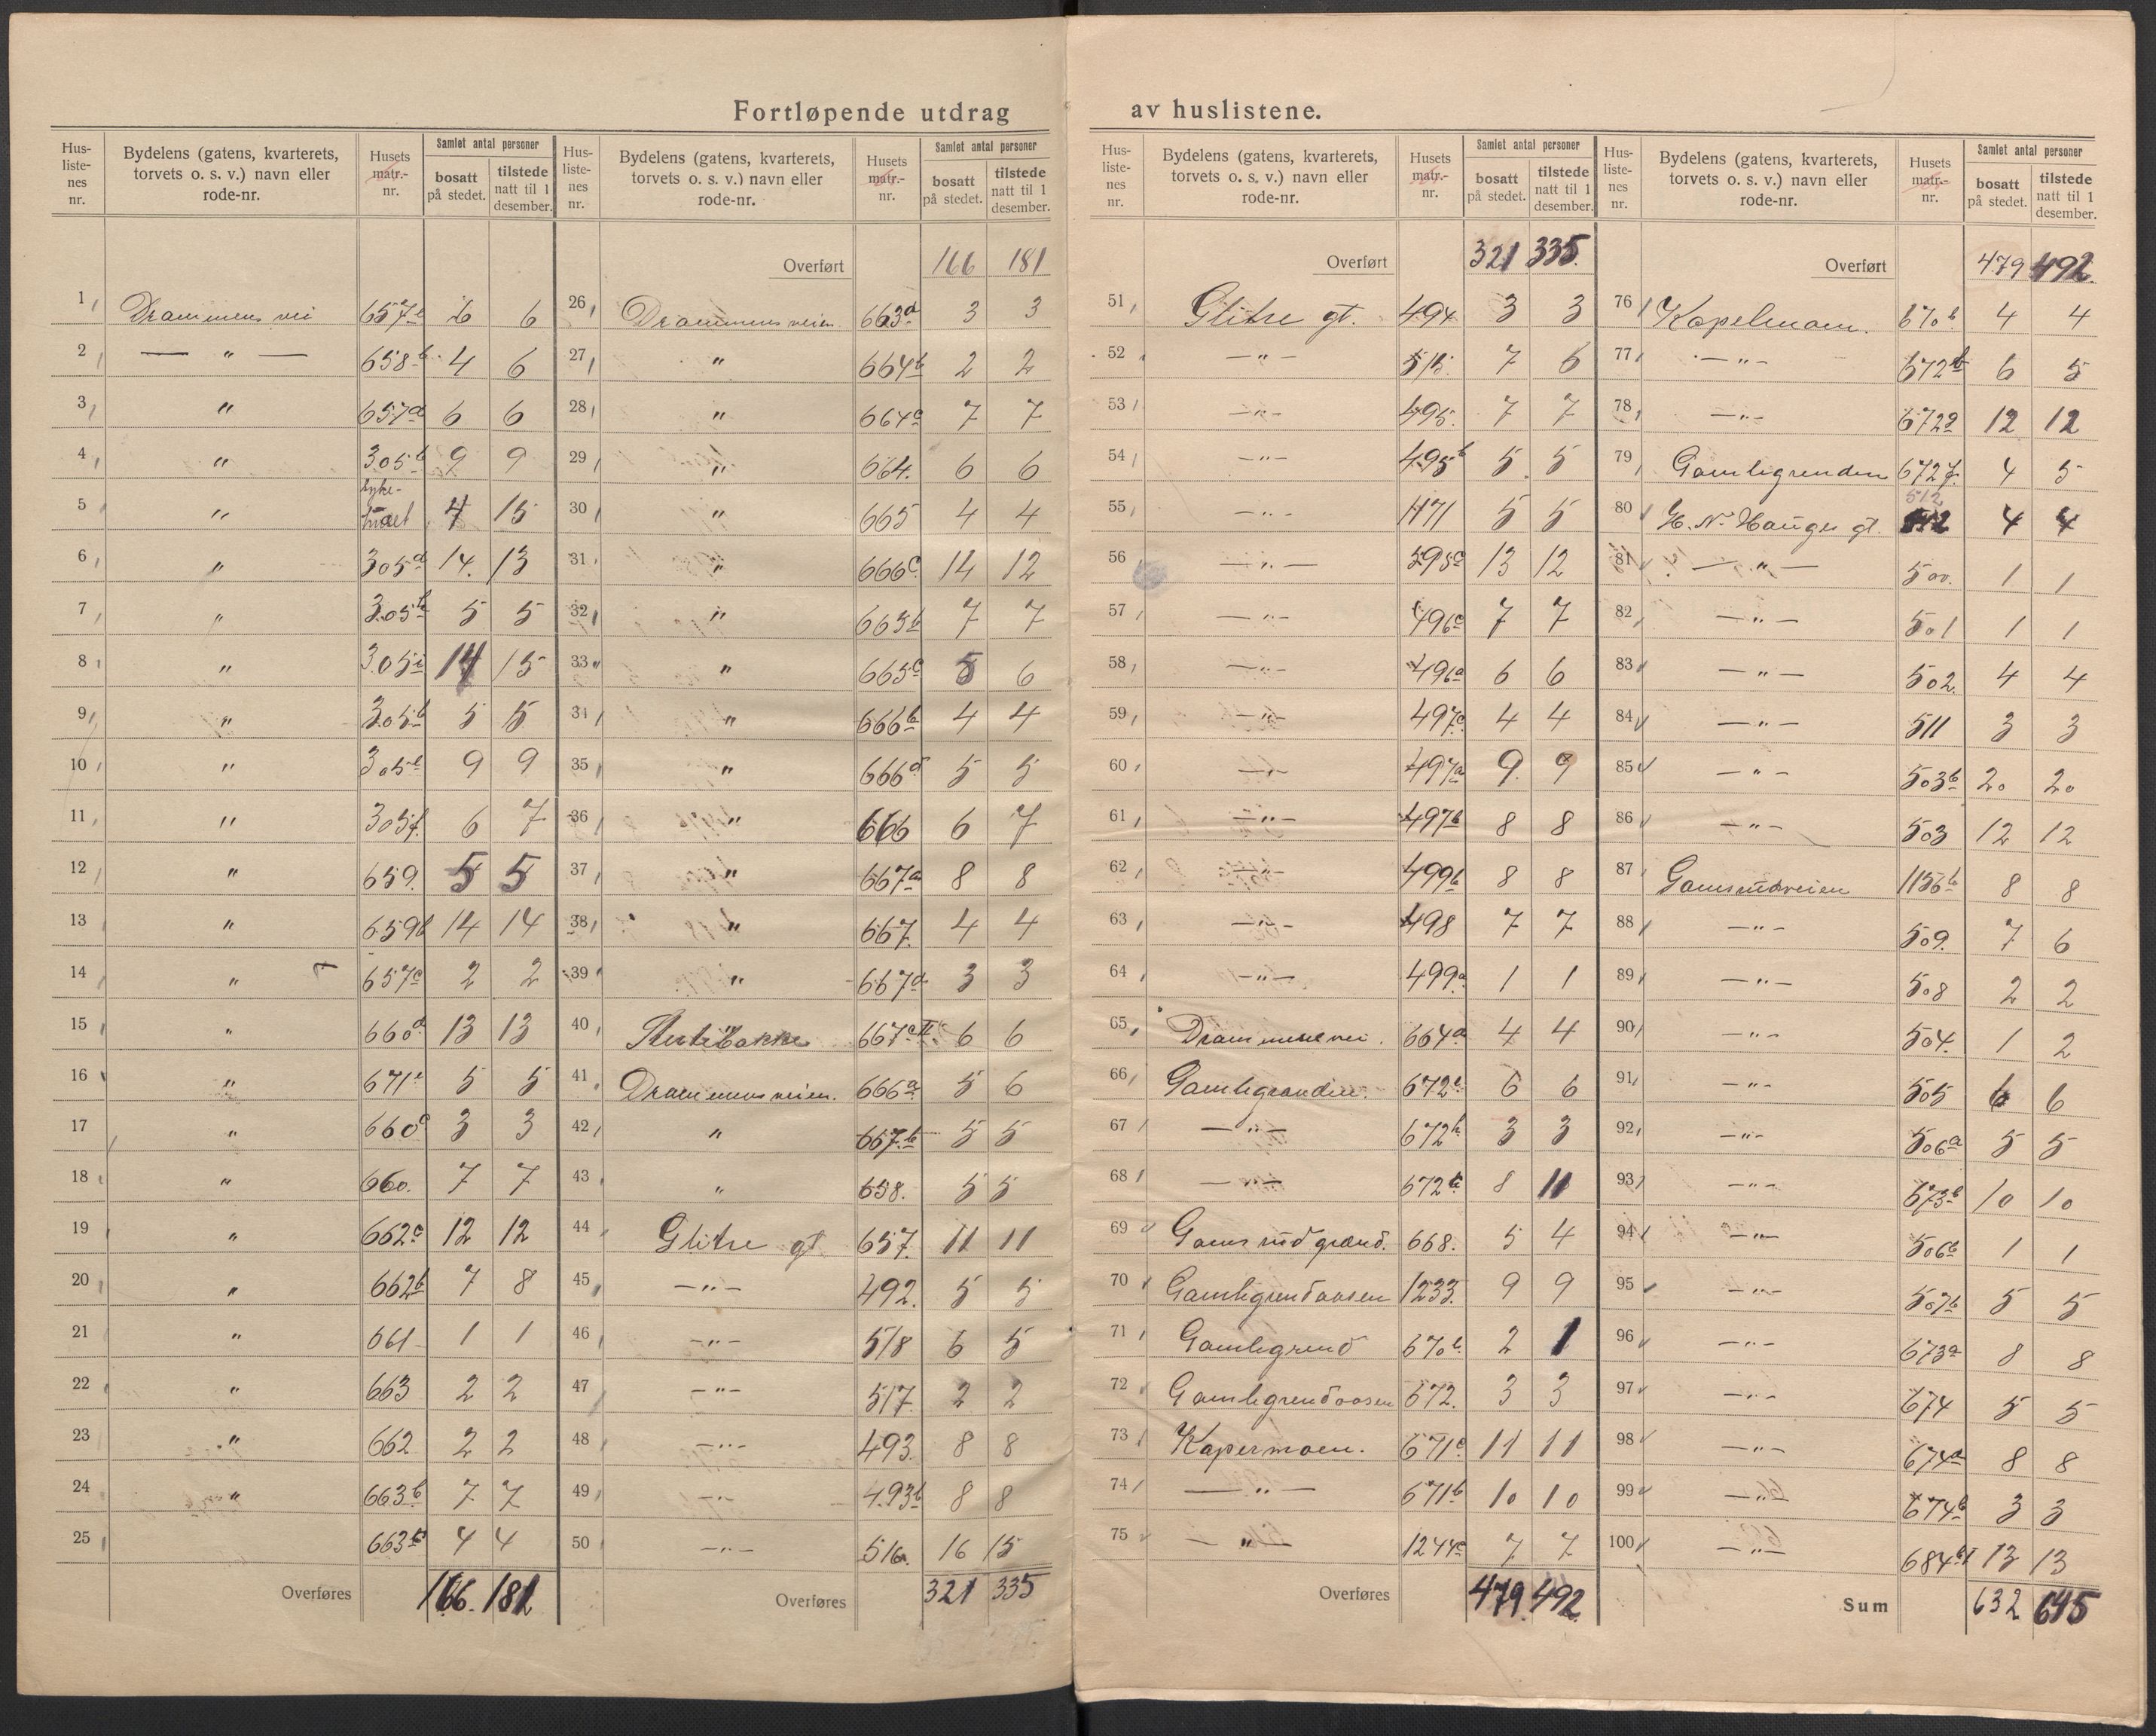 Fortløpende utdrag av huslistene.
Hus-liste-nes nr. | Bydelens (gatens, kvarterets, torvets o. s. v.) navn eller rode-nr. | Husets matr.-nr. | Samlet antal personer | bosatt på stedet. | tilstede natt til 1 desember.
1 Drammens vei 657 6 6
2 — " — 658b 4 6
3 " 657d 6 6
4 " 305b 9 9
5 " syke-huset 4 15
6 " 305d 14. 13
7 " 305h 5 5
8 " 305i 14 15
9 " 305b 5 5
10 " 305e 9 9
11 " 305f. 6 7
12 " 659. 5 5
13 " 659b 14 14
14 " 657c 2 2
15 " 660d 13 13
16 " 671e 5 5
17 " 660c 3 3
18 " 660. 7 7
19 " 662c 12 12
20 " 662b 7 8
21 " 661 1 1
22 " 663 2 2
23 " 662 2 2
24 " 663b 7 7
25 663c 4 4
Overføres 166. 181
Hus-liste-nes nr. | Bydelens (gatens, kvarterets, torvets o. s. v.) navn eller rode-nr. | Husets matr.-nr. | Samlet antal personer | bosatt på stedet. | tilstede natt til 1 desember.
Overført 166 181
26 Drammensveien 663d 3 3
27 " 664b 2 2
28 " 664c 7 7
29 " 664. 6 6
30 " 665 4 4
31 " 666c 14 12
32 " 665b 7 7
33 " 665c 5 6
34 " 666b 4 4
35 " 666d 5 5
36 " 666 6 7
37 " 667a 8 8
38 " 667. 4 4
39 " 667d 3 3
40 667a II 6 6
41 Drammensveien. 666a 5 6
42 " 667.b 5 5
43 " 658. 5 5
44 Glitre gt 657. 11 11
45 — " — 492. 5 5
46 — " — 518 6 5
47 — " — 517. 2 2
48 — " — 493. 8 8
49 — " — 493b 8 8
50 — " — 516. 16 15
Overføres 321 335
Hus-liste-nes nr. | Bydelens (gatens, kvarterets, torvets o. s. v.) navn eller rode-nr. | Husets matr.-nr. | Samlet antal personer | bosatt på stedet. | tilstede natt til 1 desember.
Overført 321 335.
51 Glitre gt. 494 3 3
52 — " — 515. 7 6
53 — " — 495. 7 7
54 — " — 495b 5 5
55 — " — 1171 5 5
56 — " — 595c 13 12
57 — " — 496c 7 7
58 — " — 496a 6 6
59 — " — 497c 4 4
60 — " — 497a 9. 9
61 — " — 497b 8 8
62 — " — 499b 8 8
63 — " — 498 7 7
64 — " — 499a 1 1
65 Drammensvei. 664a 4 4
66 Gamlegrenden. 672e 6 6
67 — " — 672h 3 3
68 — " — 672 8 11
69 Gamsrud grænd. 668. 5 4
70 Gamlegrendaasen 1233. 9 9
71 Gamlegrend 670b. 2 1
72 Gamlegrendaasen 672. 3 3
73 Kapermoen. 671c 11 11
74 — " — 671b 10 10
75 — " 1244c 7 7
Overføres 479. 492.
Hus-liste-nes nr. | Bydelens (gatens, kvarterets, torvets o. s. v.) navn eller rode-nr. | Husets matr.-nr. | Samlet antal personer | bosatt på stedet. | tilstede natt til 1 desember.
Overført 479 492.
76 Kapelmoen. 670b 4 4
77 — " — 672b 6 5
78 — " — 672d 12 12
79 Gamlegrenden 672f. 4 5
80 H. N. Hauges gt. 512 4 4
81 — " — 500. 1 1
82 — " — 501 1 1
83 — " — 502. 4 4
84 — " — 511 3 3
85 — " — 503b 20 20
86 — " — 503 12 12
87 Gamsrudveien 1156b 8 8
88 — " — 509. 7 6
89 — " — 508 2 2
90 — " — 504. 1 2
91 — " — 505 6 6
92 — " — 506a 5 5
93 — " — 673b 10 10
94 — " — 506b 1 1
95 — " — 507b 5 5
96 — " — 673a 8 8
97 — " — 674 5 5
98 — " — 674a 8 8
99 — " — 674b 3 3
100 — " — 684 13 13
Sum 632 645